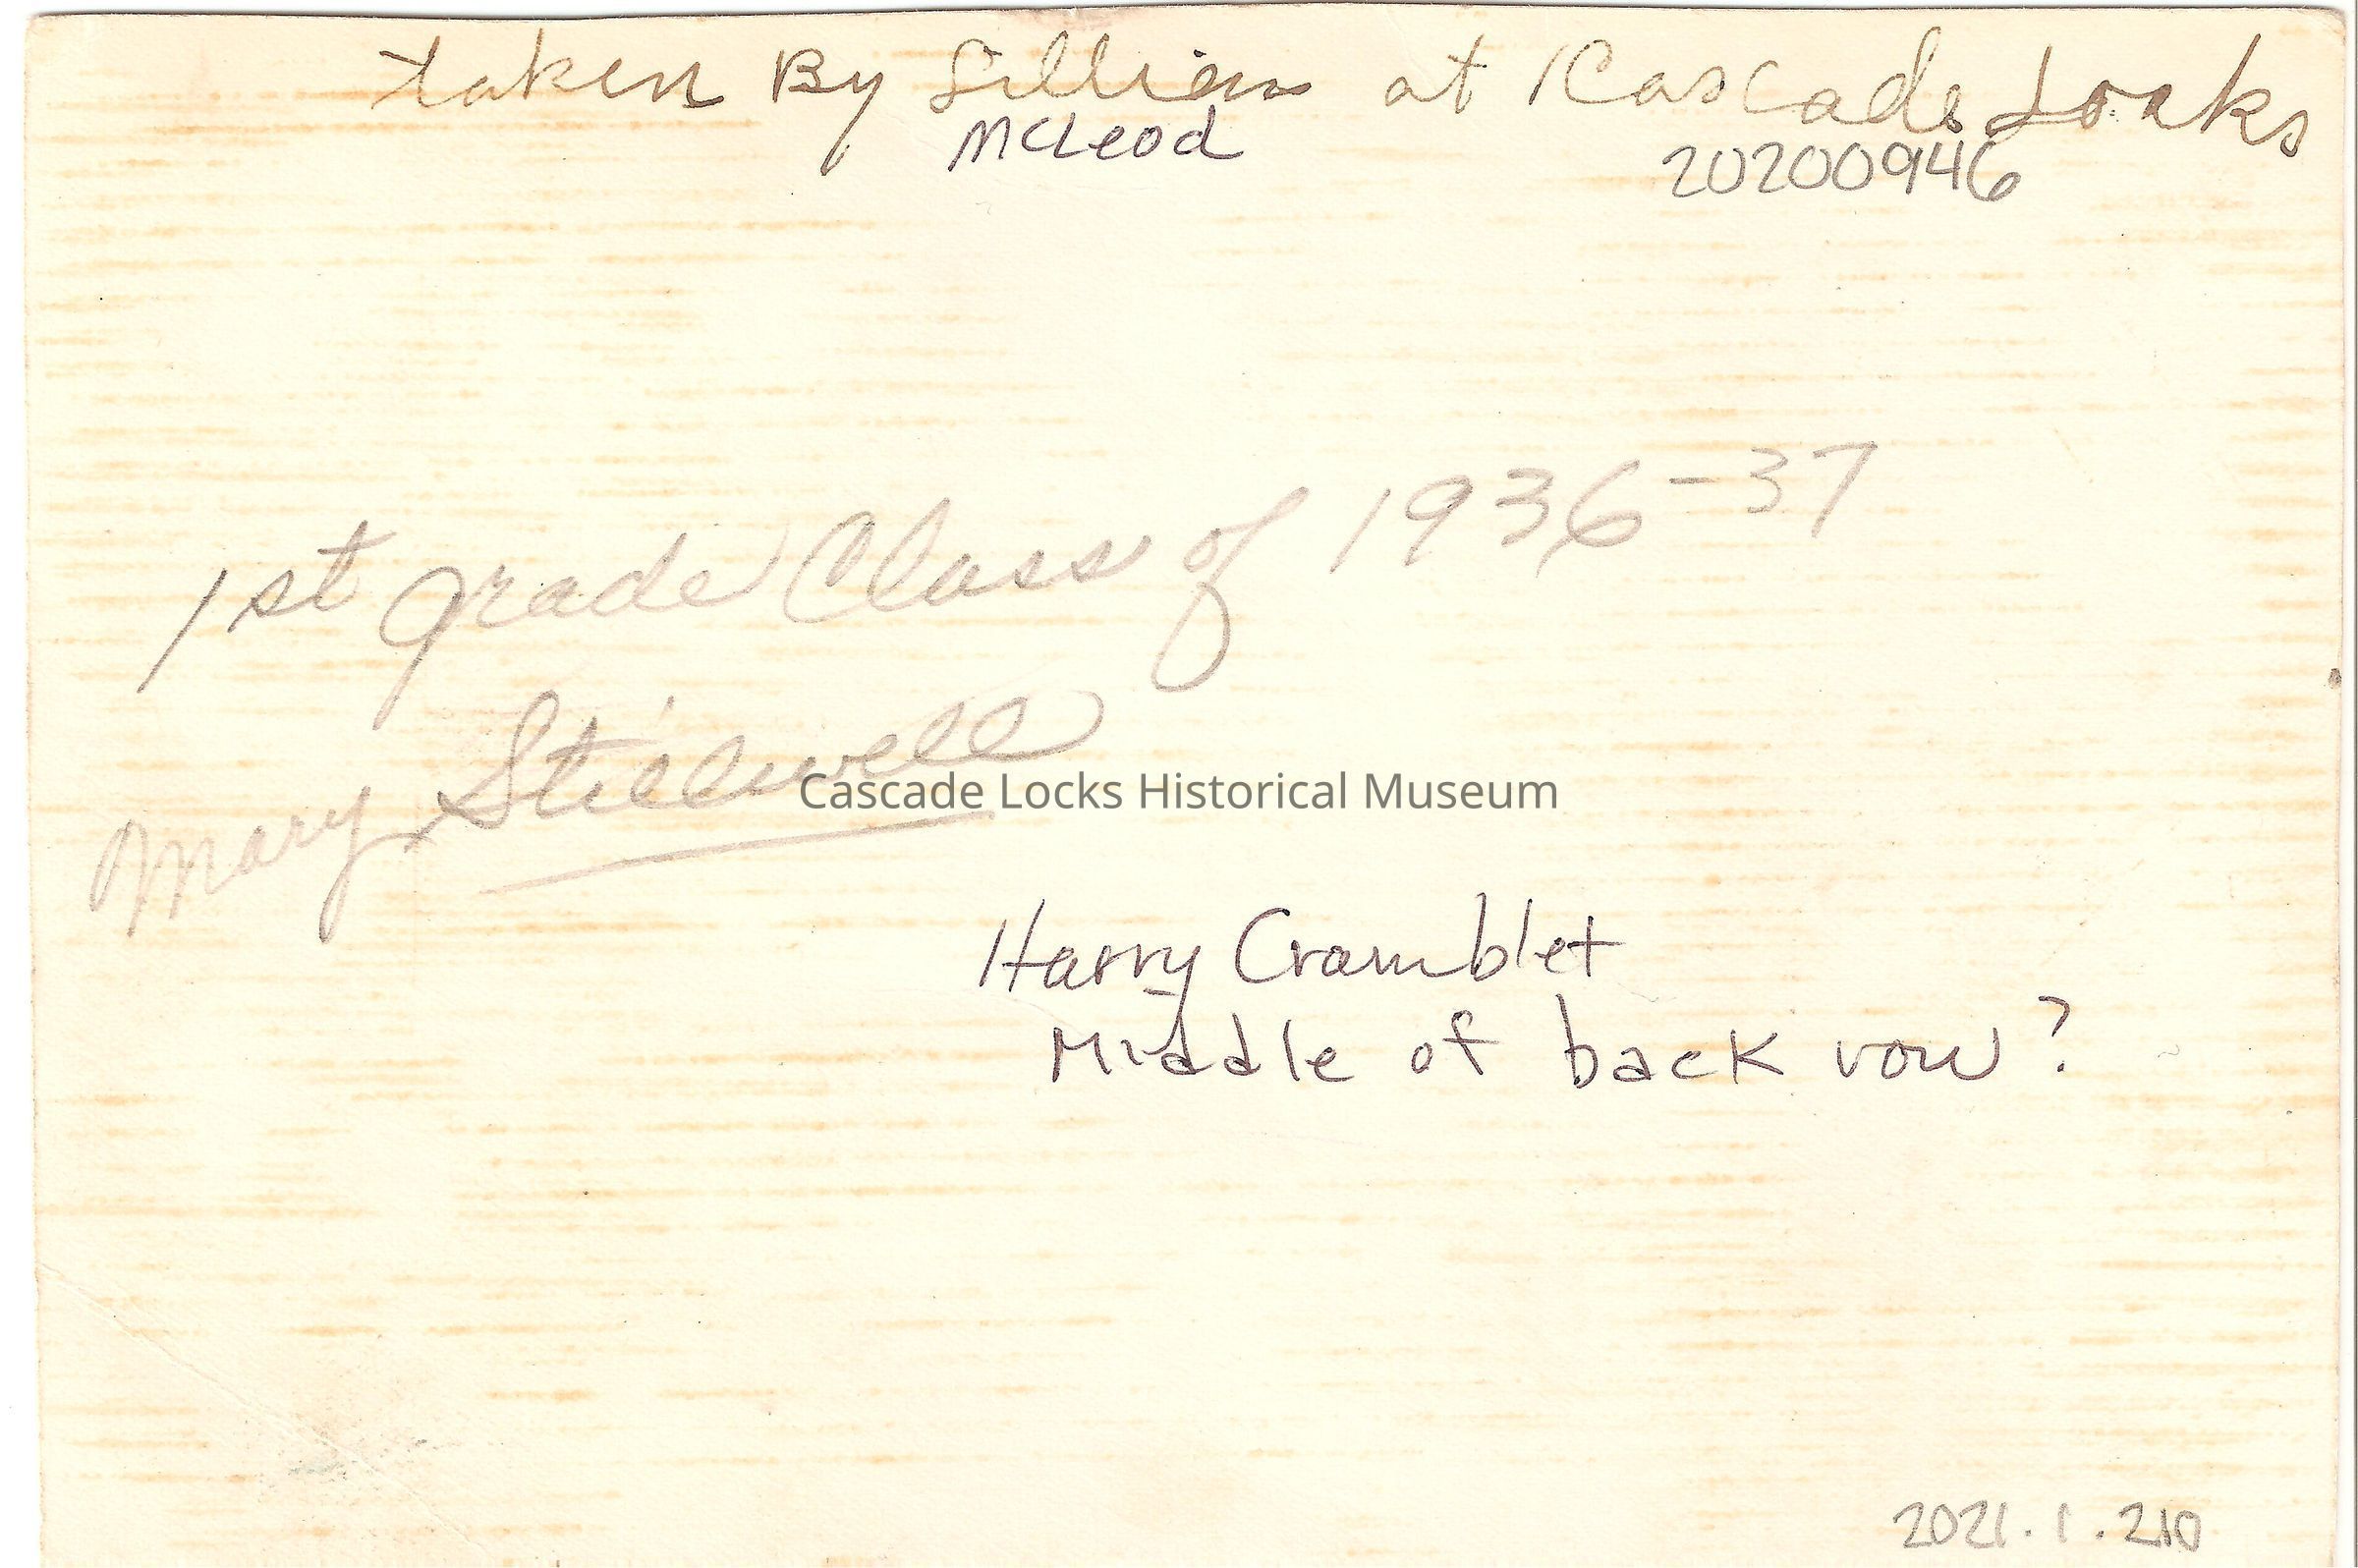 taken By Lillian at Cascade Locks
McLeod
20200946
1st grade Class of 1936-37
Mary Stillwell
Cascade Locks Historical Museum
Harry Cramblet
Middle of back row?
2021.1.210